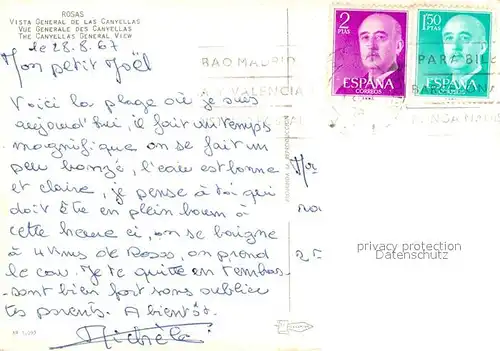 ROSAS
VISTA GENERAL DE LAS CANYELLAS
VUE GENERALE DES CANYELLAS
THE CANYELLAS GENERAL VIEW
le 28.8.67
Mon petit Joël
Voici la plage où je suis
aujourd'hui, il fait un temps
magnifique on se fait un
peu bronzé, l'eau est bonne
et claire, je pense à toi qui
doit être en plein boum à
cette heure ci, on se baigne
à 4 kms de Rosas, on prend
le car. Je te quitte en t'embras-
sant bien fort sans oublier
tes parents. A bientôt.
Michèle
2 PTAS
ESPAÑA
CORREOS
1,50 PTAS
ESPAÑA
BAQ MADRID
VALENCIA
PARA BIL
BARCELONA
privacy protection
www.delcampe.net